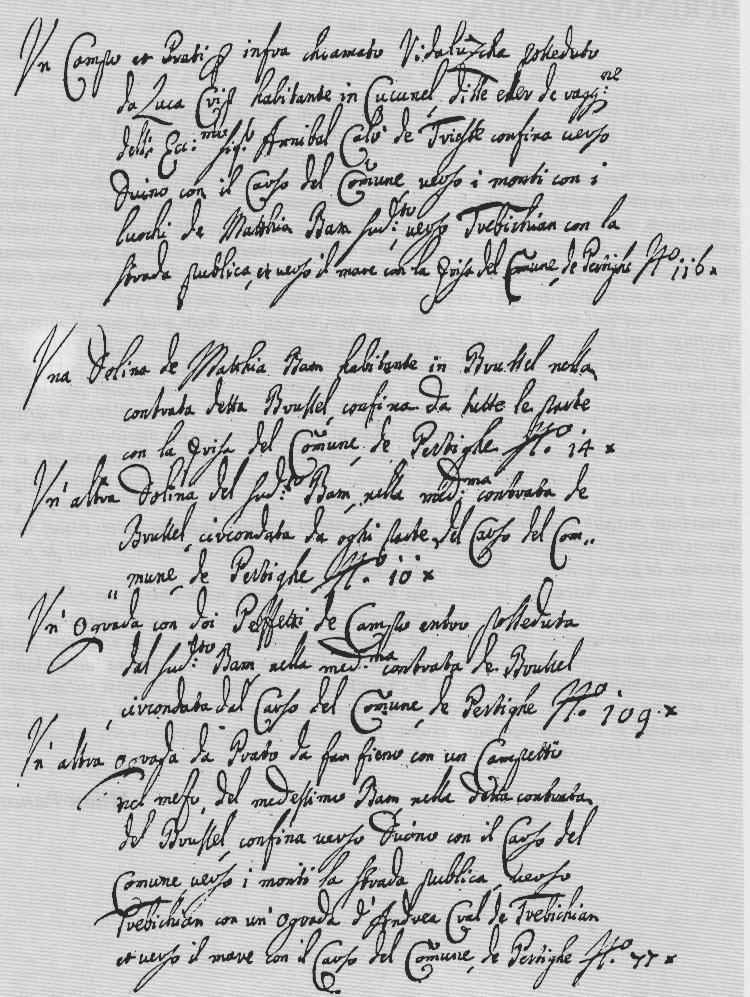 Un Campo et Prati infra chiamato Vidaluzcha posseduto
da Luca habitante in Cucunel, disse esser de ragg:ne
dell: Ecc:mo sig:r Annibal Calò de Trieste confina verso
Duino con il Carso del Comũne verso i monti con i
luochi de Matthia Bam sud:tto, verso Trebichian con la
strada publica, et verso il mare con la del Comũne, de Persighe No. 116 x
Una Dolina de Matthia Bam habitante in Brussel nella
contrata detta Brussel, confina da tutte le parte
con la del Comũne, de Persighe No. 14 x
Un' altra Dolina del sud:to Bam, nella med:ma contrata de
Brussel, circondata da ogni parte, del Carso del Com,,
,,mune, de Persighe No. 10 x
Un' Ograda con doi Pezzetti de Campo entro posseduta
dal sud:tto Bam nella med:ma contrata de Brussel
circondata dal Carso del Comũne, de Persighe No. 109. x
Un' altra ograda da Prato da fan fieno con un Campetto
nel mezo, del medessimo Bam nella detta contrata
del Brussel, confina verso Duino con il Carso del
Comune verso i monti la strada publica, verso
Trebichian con un' Ograda d'Andrea Cral de Trebichian
et verso il mare con il Carso del Comũne, de Persighe No. 77 x